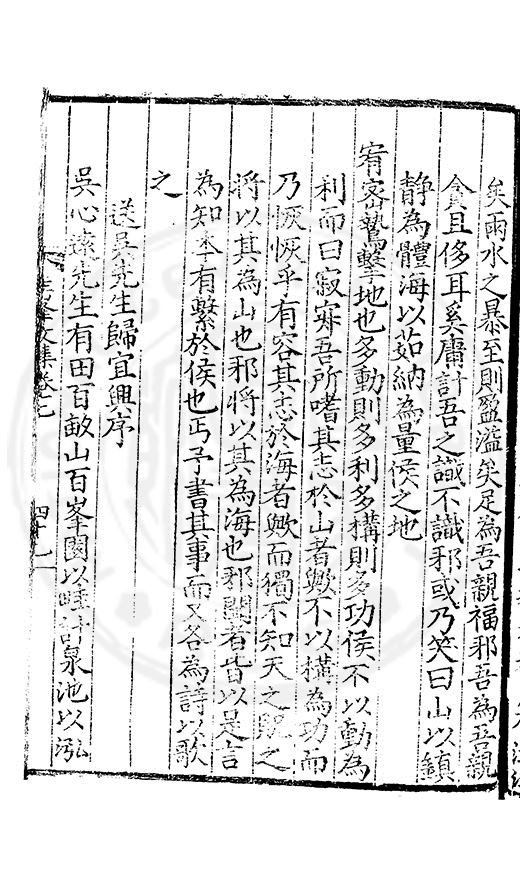 矣雨水之暴至則盈溢矣足為吾親福邪吾為吾親
貪且侈耳奚庸計吾之識不識邪或乃笑曰山以鎮
靜為體海以茹納為量侯之地
宥密鷙擊地也多動則多利多構則多功侯不以動為
利而曰寂寂吾所嗜其志於山者歟不以構為功而
乃恢恢乎有容其志於海者歟而獨不知天之貺之
將以其為山也邪將以其為海也邪聞者皆以是言
為知李有繫於侯也丐予書其事而又各為詩以歌
之
送吳先生歸宜興序
吳心遠先生有田百畝山百峯園以畦計泉池以泓
文集卷七 四十七